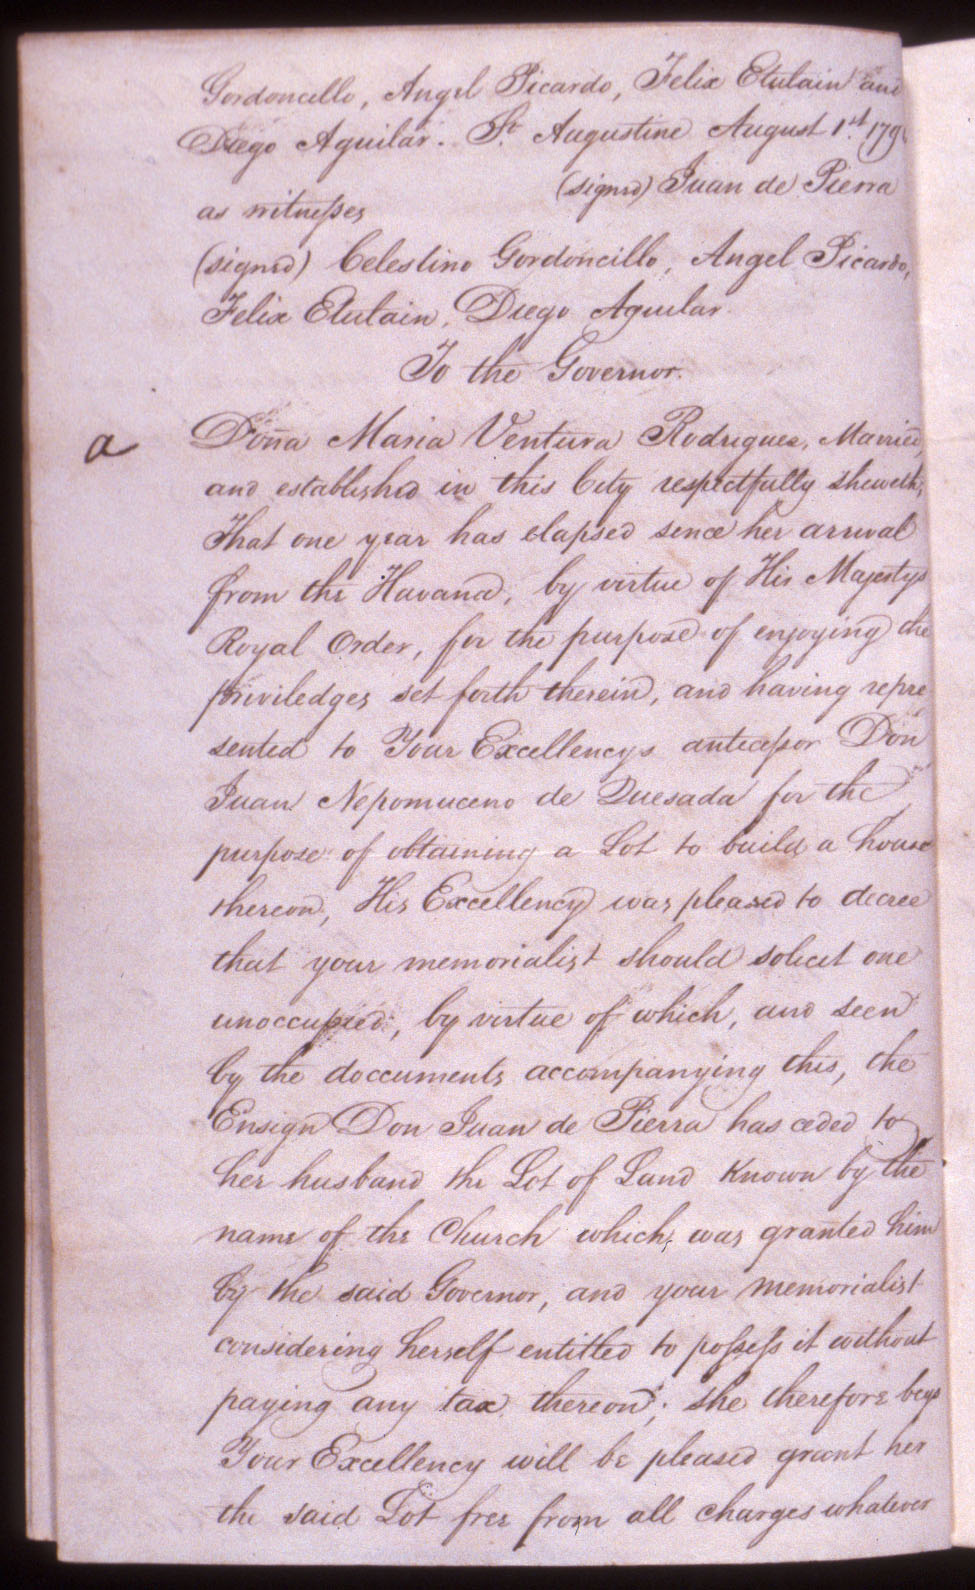 Gordoncello, Angel Picardo, Felix Etulain and
Diego Aguilar. St. Augustine August 1st. 179
(signed) Juan de Pierra
as witnesses
(signed) Celestino Gordoncillo, Angel Picardo,
Felix Etulain, Diego Aguilar.
To the Governor.
a
Doña Maria Ventura Rodrigues, Married,
and established in this City respectfully sheweth;
That one year has elapsed since her arrival
from the Havana, by virtue of His Majestys
Royal Order, for the purpose of enjoying the
priviledges set forth therein, and having repre
sented to Your Excellencys antecessor Don
Juan Nepomuceno de Quesada for the
purpose of obtaining a Lot to build a house
thereon, His Excellency was pleased to decree
that your memorialist should solicit one
unoccupied, by virtue of which, and seen
by the doccuments accompanying this, the
Ensign Don Juan de Pierra has ceded to
her husband the Lot of Land Known by the
name of the Church which, was granted him
by the said Governor, and your memorialist
considering herself entitled to possess it without
paying any tax thereon; she therefore begs
Your Excellency will be pleased grant her
the said Lot free from all charges whatever